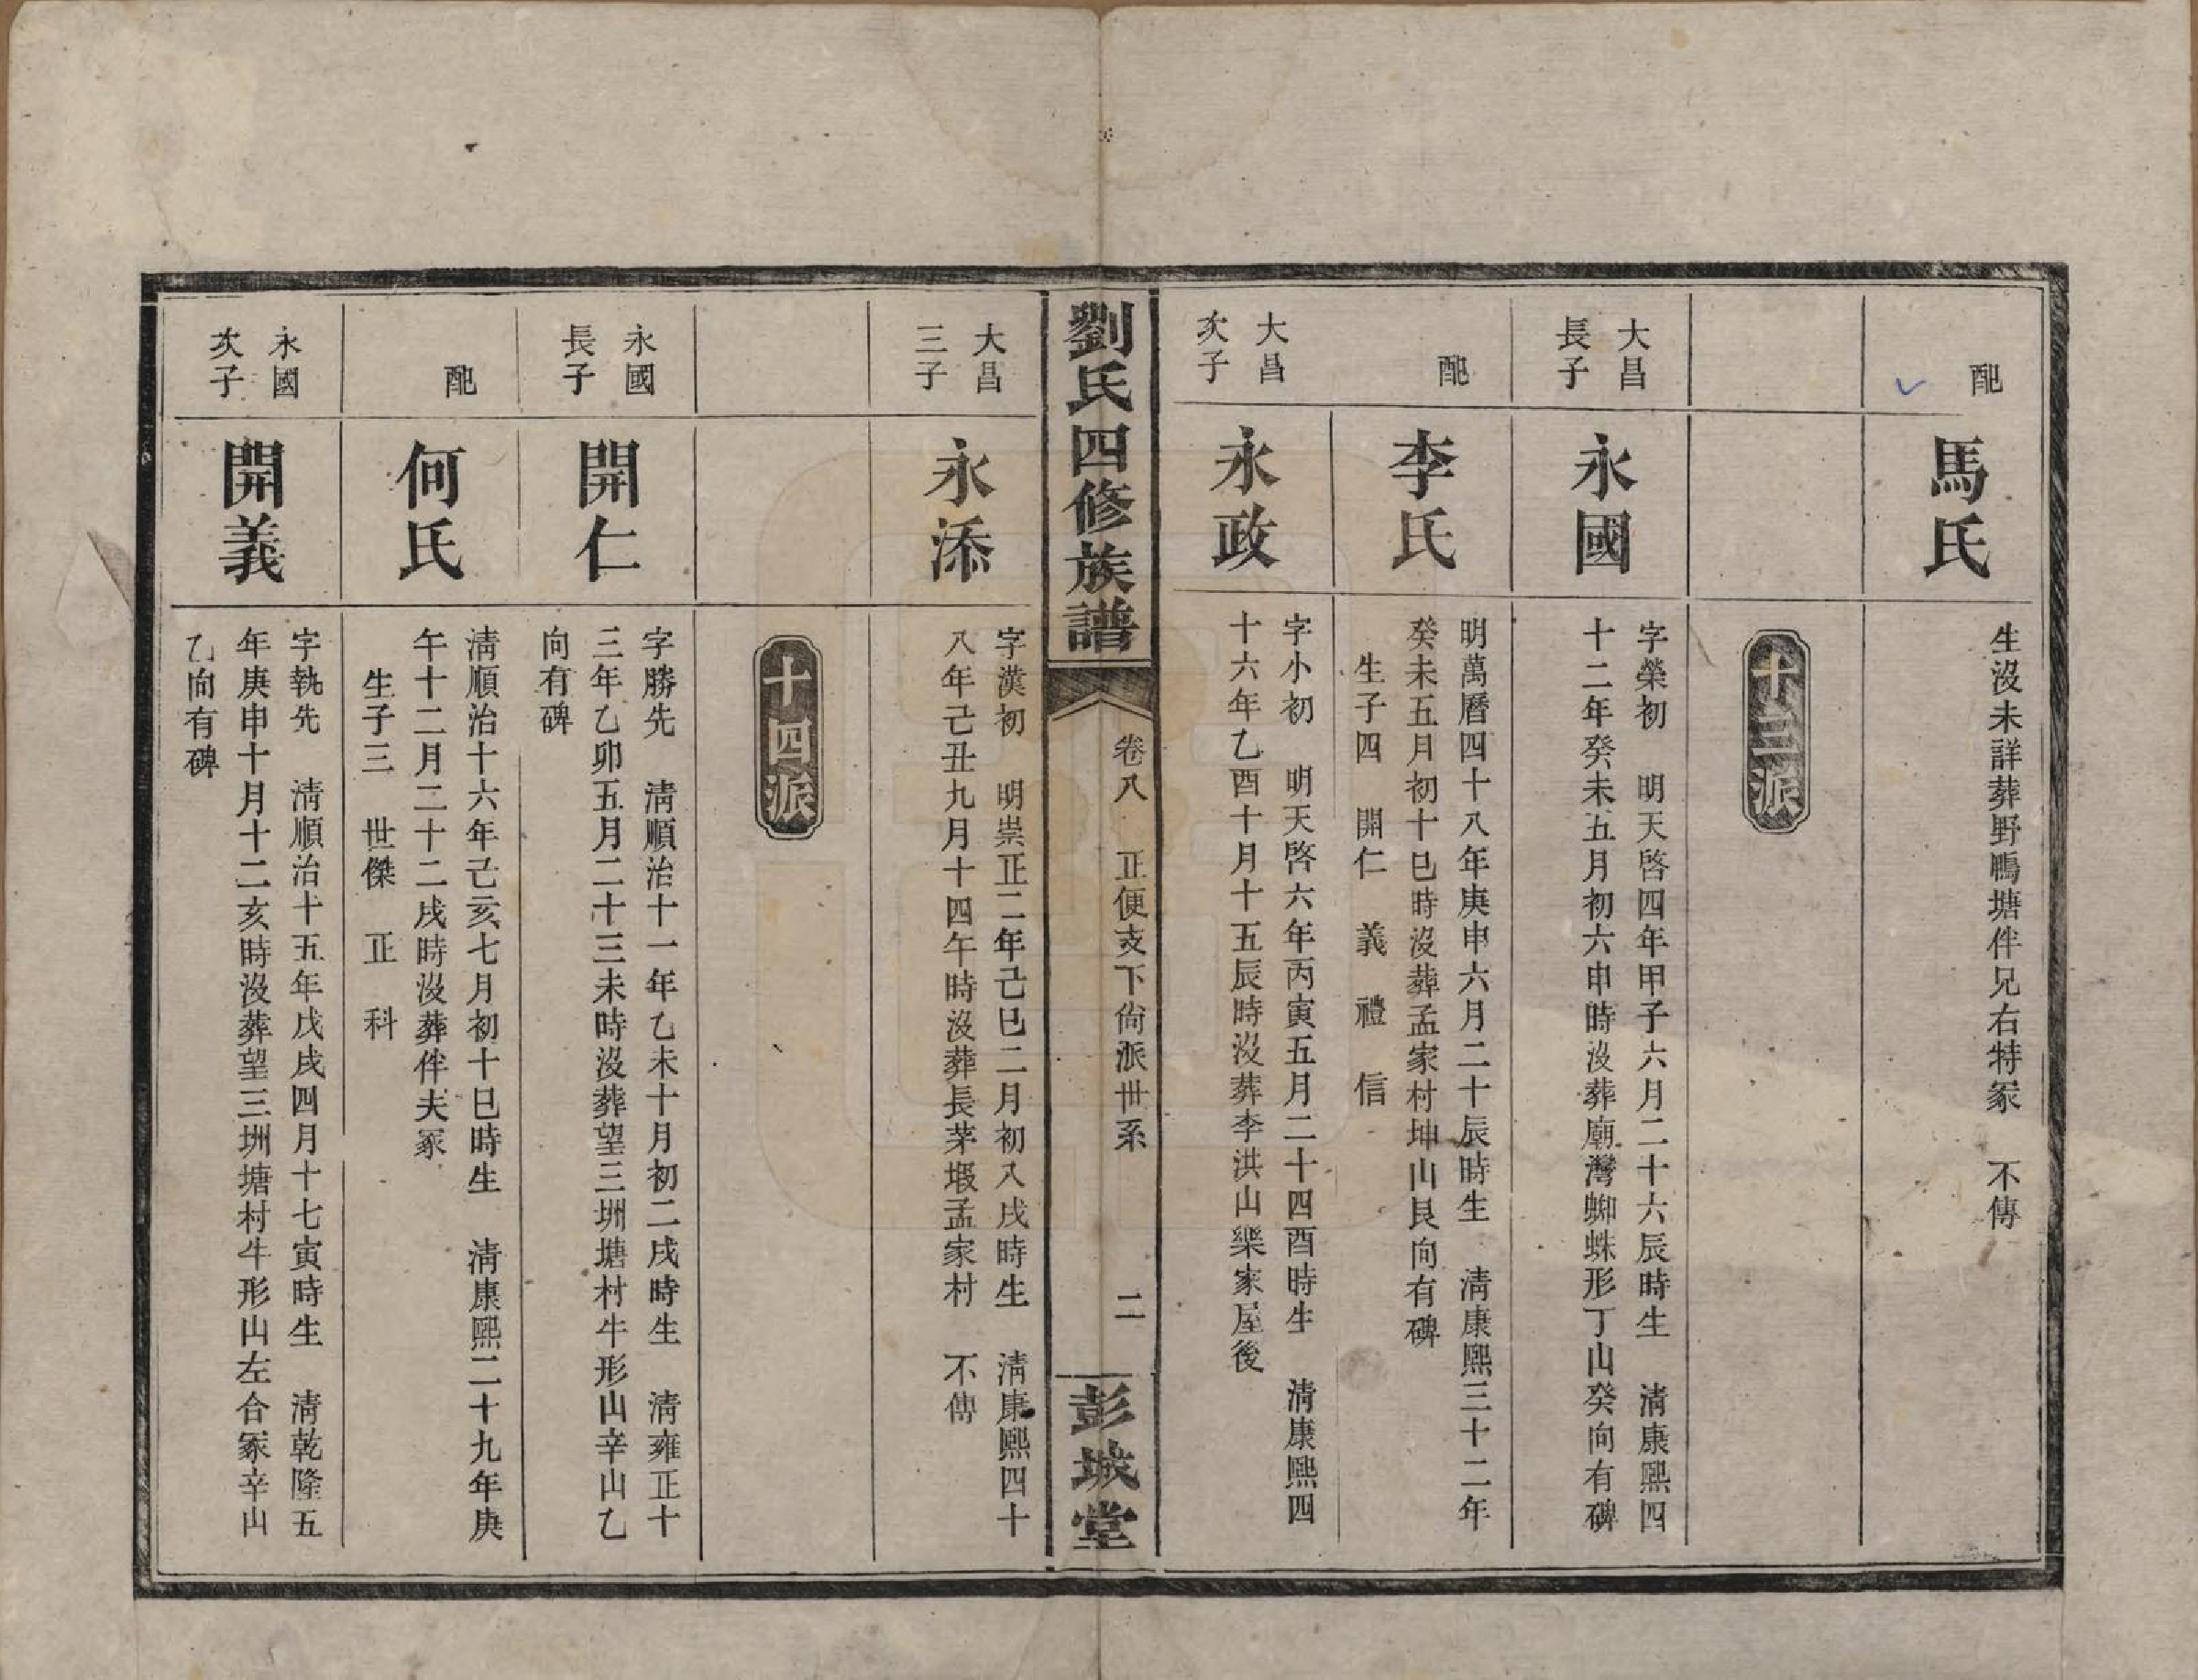 配
馬氏
生沒未詳葬野鴨塘伴兄右特冢 不傳
十三派
大昌
長子
永國
字榮初 明天啓四年甲子六月二十六辰時生 淸康熙四
十二年癸未五月初六申時沒葬廟灣蜘蛛形丁山癸向有碑
配
李氏
明萬曆四十八年庚申六月二十辰時生 淸康熙三十二年
癸未五月初十巳時沒葬孟家村坤山艮向有碑
生子四 開仁 義 禮 信
大昌
次子
永政
字小初 明天啓六年丙寅五月二十四酉時生 淸康熙四
十六年乙酉十月十五辰時沒葬李洪山樂家屋後
劉氏四修族譜
卷八 正便支下尙派世系
二
彭城堂
大昌
三子
永添
字漢初 明崇正二年己巳二月初八戌時生 淸康熙四十
八年己丑九月十四午時沒葬長茅塅孟家村 不傳
十四派
永國
長子
開仁
字勝先 淸順治十一年乙未十月初二戌時生 淸雍正十
三年乙卯五月二十三未時沒葬望三垇塘村牛形山辛山乙
向有碑
配
何氏
淸順治十六年己亥七月初十巳時生 淸康熙二十九年庚
午十二月二十二戌時沒葬伴夫冢
生子三 世傑 正 科
永國
次子
開義
字執先 淸順治十五年戊戌四月十七寅時生 淸乾隆五
年庚申十月十二亥時沒葬望三垇塘村牛形山左合冢辛山
乙向有碑